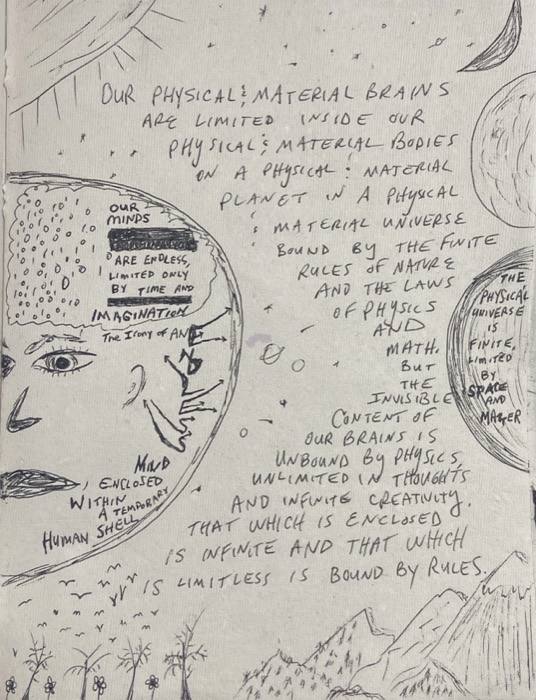 OUR PHYSICAL & MATERIAL BRAINS
ARE LIMITED INSIDE OUR
PHYSICAL & MATERIAL BODIES
ON A PHYSICAL & MATERIAL
PLANET IN A PHYSICAL
& MATERIAL UNIVERSE
BOUND BY THE FINITE
RULES OF NATURE
AND THE LAWS
OF PHYSICS
AND
MATH.
BUT
THE
INVISIBLE
CONTENT OF
OUR BRAINS IS
UNBOUND BY PHYSICS,
UNLIMITED IN THOUGHTS
AND INFINITE CREATIVITY.
THAT WHICH IS ENCLOSED
IS INFINITE AND THAT WHICH
IS LIMITLESS IS BOUND BY RULES.
OUR
MINDS
ARE ENDLESS,
LIMITED ONLY
BY TIME AND
IMAGINATION
The Irony of AN
MIND
ENCLOSED
WITHIN
A TEMPORARY
HUMAN SHELL
THE
PHYSICAL
UNIVERSE
IS
FINITE,
LIMITED
BY
SPACE
AND
MATTER